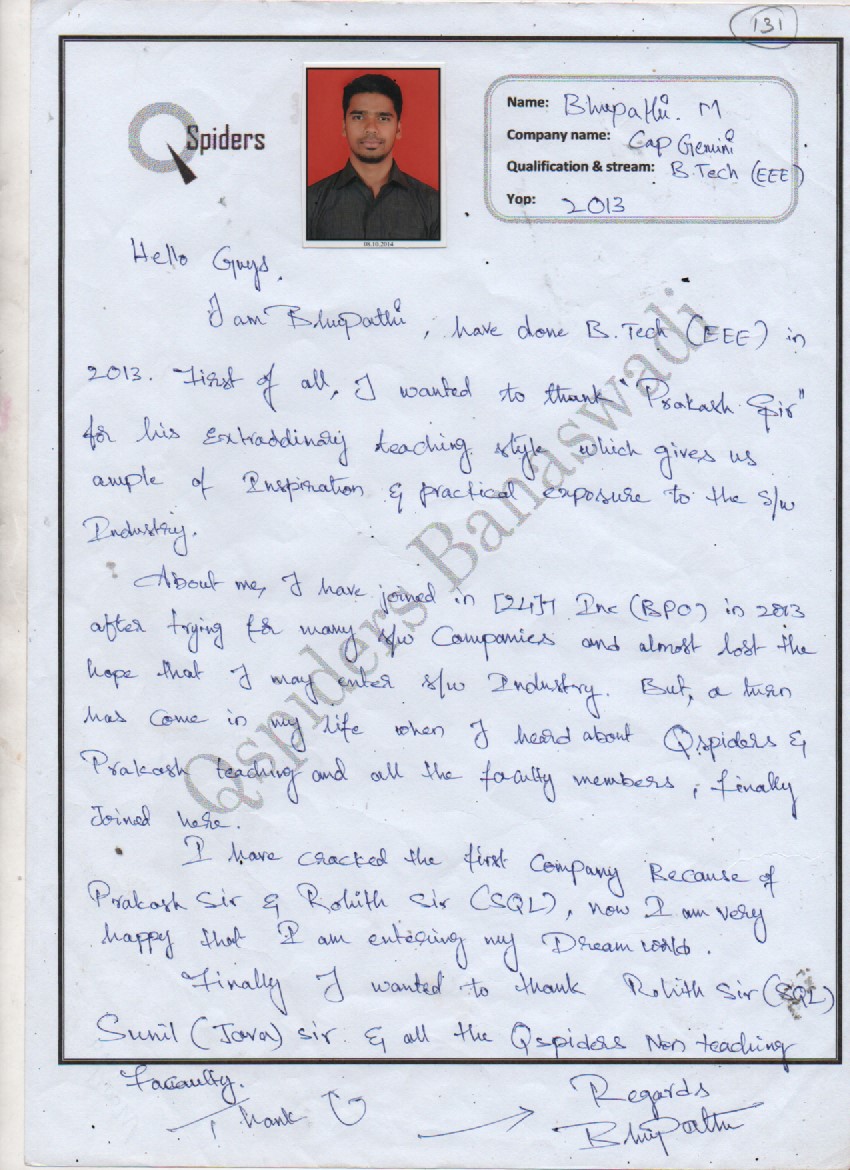 131
Spiders
Name: Bhupathi. M
Company name: Cap Gemini
Qualification & stream: B.Tech (EEE)
Yop: 2013
08.10.2014
Hello Guys,
I am Bhupathi, have done B.Tech (EEE) in
2013. First of all, I wanted to thank "Prakash Sir"
for his Extraddinary teaching style which gives us
ample of Inspiration & practical exposure to the s/w
Industry.
About me, I have joined in [24]7 Inc (BPO) in 2013
after trying for many s/w Companies and almost lost the
hope that I may enter s/w Industry. But, a turn
has come in my life when I heard about Qspiders &
Prakash teaching and all the faculty members, finally
Joined here.
I have cracked the first Company Because of
Prakash Sir & Rohith Sir (SQL), now I am very
happy that I am entering my Dream world.
Finally I wanted to thank Rohith Sir (SQL)
Sunil (Java) sir & all the Qspiders Non teaching
Facaulty.
Thank U
Regards
Bhupathi
Qspiders Banaswadi